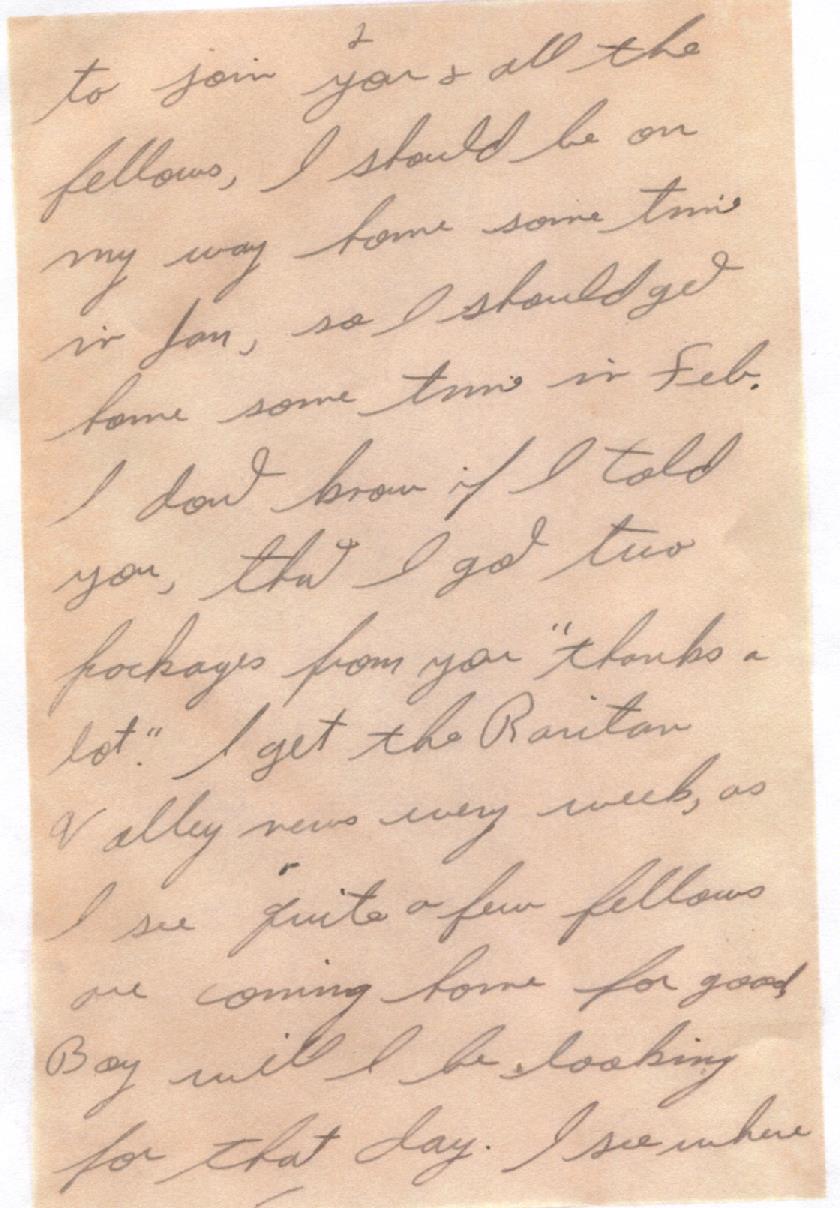 2
to join you & all the
fellows, I should be on
my way home some time
in Jan, so I should get
home some time in Feb.
I don't know if I told
you, that I got two
packages from you "thanks a
lot." I get the Raritan
Valley news every week, as
I see quite a few fellows
are coming home for good,
Boy will I be looking
for that day. I see where